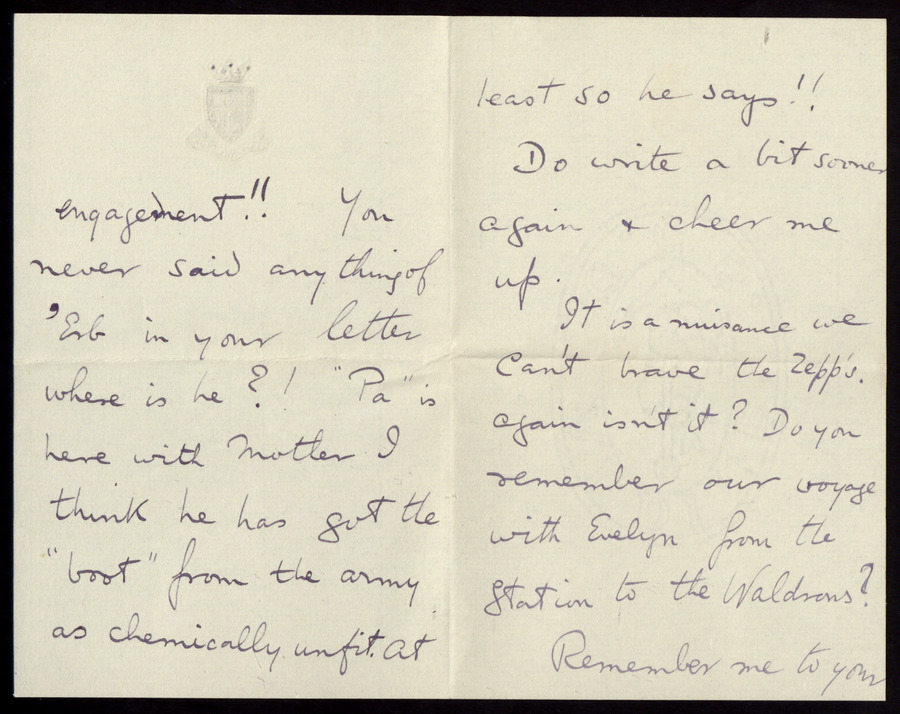 engagement!! You
never said anything of
'Erb in your letter
where is he?! "Pa" is
here with Mother I
think he has got the
"boot" from the army
as chemically unfit. At
least so he says!!
Do write a bit sooner
again & cheer me
up.
It is a nuisance we
can't brave the Zepp's.
again isn't it? Do you
remember our voyage
with Evelyn from the
station to the Waldrons?
Remember me to your